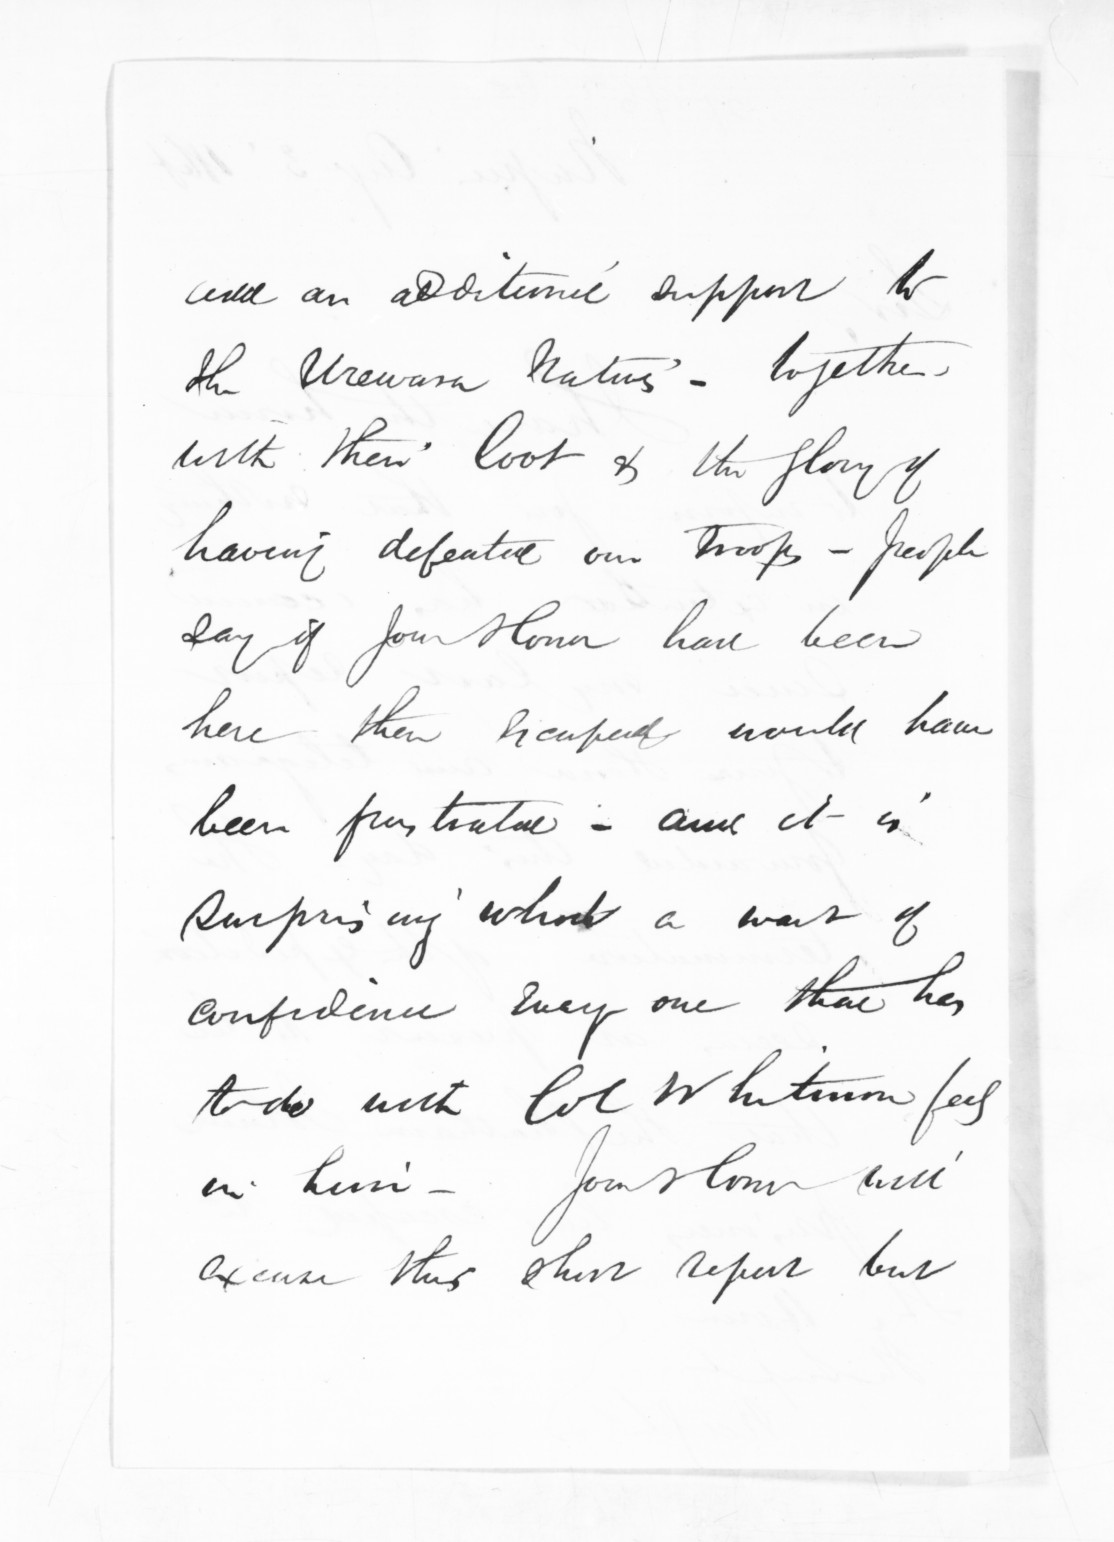 add an additional support to
the Urewara Natives - together
with their loot & the glory of
having defeated our troops - people
say if Your Honor had been
here their escapade would have
been frustrated - and it is
surprising what a want of
confidence every one that has
to do with Col Whitmore feels
in him - Your Honor will
excuse this short report but